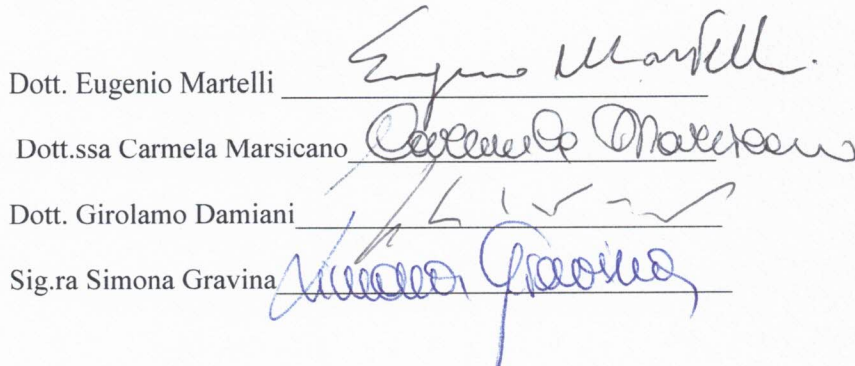 Dott. Eugenio Martelli Eugenio Martelli
Dott.ssa Carmela Marsicano Carmela Marsicano
Dott. Girolamo Damiani
Sig.ra Simona Gravina Simona Gravina